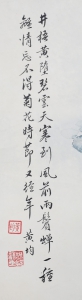 井梧黄堕碧雲天寒到風前雨鬢蟬一種
無情忘不得菊花時節又經年 黄均